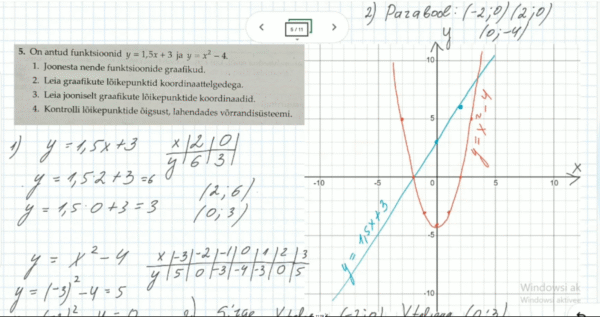 2) Parabool: (-2;0) (2;0)
y (0;-4)
5/11
5. On antud funktsioonid y = 1,5x + 3 ja y = x² – 4.
1. Joonesta nende funktsioonide graafikud.
2. Leia graafikute lõikepunktid koordinaattelgedega.
3. Leia jooniselt graafikute lõikepunktide koordinaadid.
4. Kontrolli lõikepunktide õigsust, lahendades võrrandisüsteemi.
1) y = 1,5x+3
x | 2 | 0
y | 6 | 3
y = 1,5·2+3=6
y = 1,5·0+3=3
(2;6)
(0;3)
y = x²-4
x | -3 | -2 | -1 | 0 | 1 | 2 | 3
y | 5 | 0 | -3 | -4 | -3 | 0 | 5
y = (-3)²-4=5
10
5
-10 -5 0 5 10
-5
-10
x
y
y = x²-4
y = 1,5x+3
Windowsi ak
Windowsi aktivee
(-2;0)
(0;3)